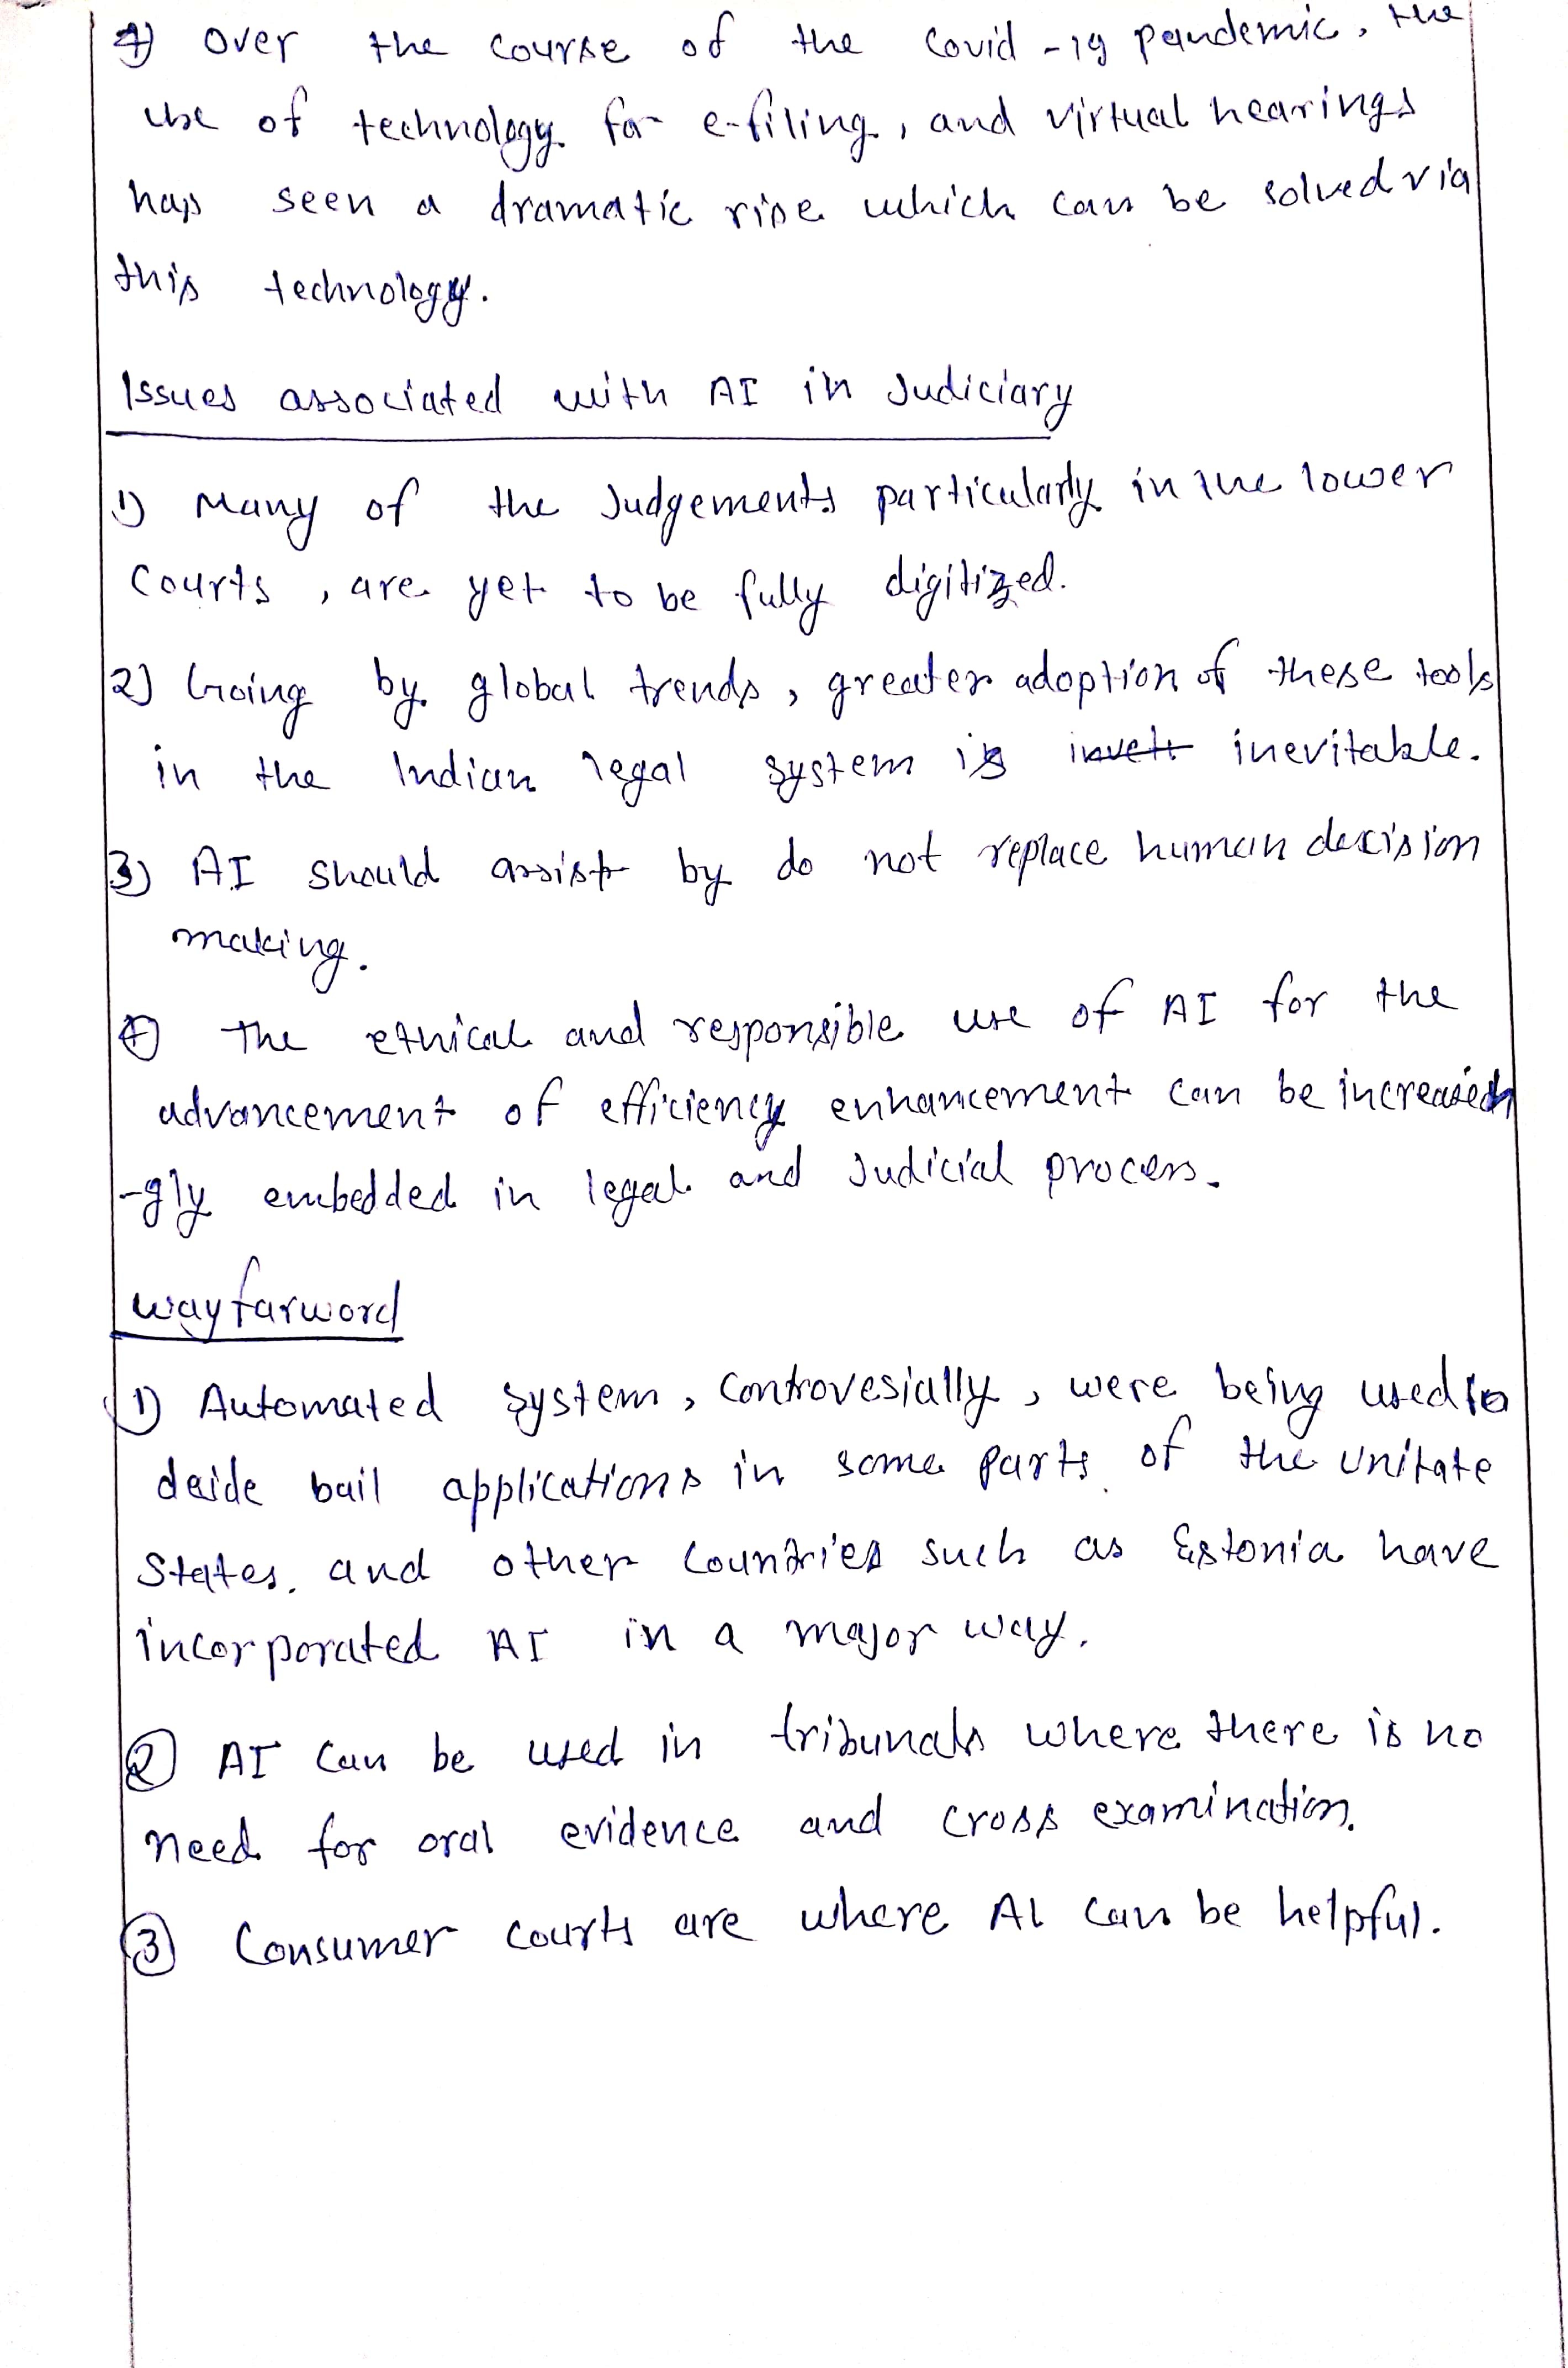 4) over the course of the Covid -19 pandemic, the
use of technology for e-filing, and virtual hearings
has seen a dramatic rise which can be solved via
this technology.
Issues associated with AI in Judiciary
1) Many of the Judgements particularly in the lower
Courts, are yet to be fully digitized.
2) Going by global trends, greater adoption of these tools
in the Indian legal system is invet inevitable.
3) AI should assist by do not replace human decision
making.
4) The ethical and responsible use of AI for the
advancement of efficiency enhancement can be increasedn
-gly embedded in legal and Judicial process.
way farword
1) Automated system, controvesially, were being used to
deide bail applications in some parts of the Unitate
States. and other Countries such as Estonia have
incorporated AI in a major way.
2) AI can be used in tribunals where there is no
need for oral evidence and cross examination.
3) Consumer courts are where AI can be helpful.